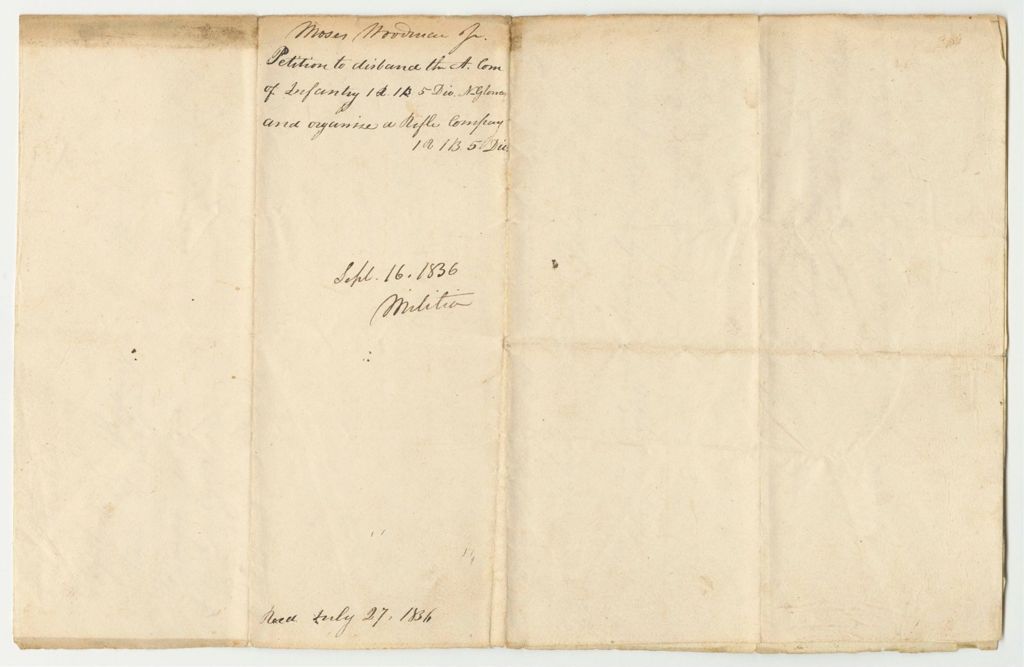 Moses Woodman Jr.
Petition to disband the A. Com
of Infantry 1 R. 1 B 5 Div. N. Glouces
and organise a Rifle Company
1 R 1 B 5 Div.
Sept. 16. 1836
Militia
Recd July 27. 1836